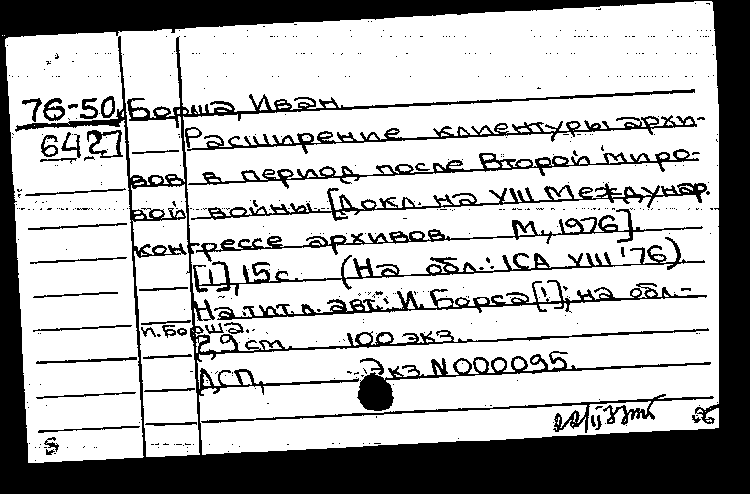 76-50 Борша, Иван.
6427 Расширение клиентуры архи-
вов в период после Второй миро-
вой войны. [Докл. на VIII Междунар.
конгрессе архивов. М., 1976].
[1], 15 с. (На обл.: ICA VIII '76).
На тит. л. авт.: И. Борса [!]; на обл.-
И. Борша.
2,9 cm. 100 экз.
ДСП, Экз. N000095.
8